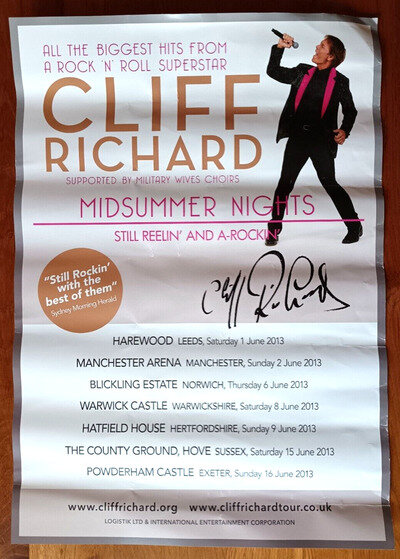 ALL THE BIGGEST HITS FROM
A ROCK 'N' ROLL SUPERSTAR
CLIFF
RICHARD
SUPPORTED BY MILITARY WIVES CHOIRS
MIDSUMMER NIGHTS
STILL REELIN' AND A-ROCKIN'
"Still Rockin'
with the
best of them"
Sydney Morning Herald
Cliff Richard
HAREWOOD LEEDS, Saturday 1 June 2013
MANCHESTER ARENA MANCHESTER, Sunday 2 June 2013
BLICKLING ESTATE NORWICH, Thursday 6 June 2013
WARWICK CASTLE WARWICKSHIRE, Saturday 8 June 2013
HATFIELD HOUSE HERTFORDSHIRE, Sunday 9 June 2013
THE COUNTY GROUND, HOVE SUSSEX, Saturday 15 June 2013
POWDERHAM CASTLE EXETER, Sunday 16 June 2013
www.cliffrichard.org www.cliffrichardtour.co.uk
LOGISTIK LTD & INTERNATIONAL ENTERTAINMENT CORPORATION